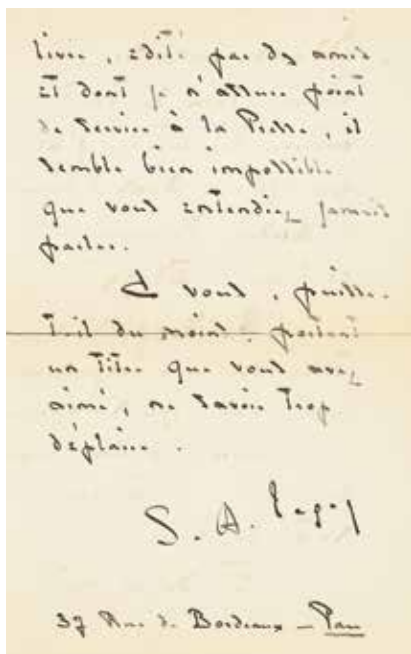 livre, édité par des amis
et dont je n'assure point
de service à la Presse, il
semble bien impossible
que vous entendiez jamais
parler.
À vous, puisse-
t-il du moins, portant
un titre que vous avez
aimé, ne savoir trop
déplaire.
S. A. Leger
37 Rue de Bordeaux - Pau